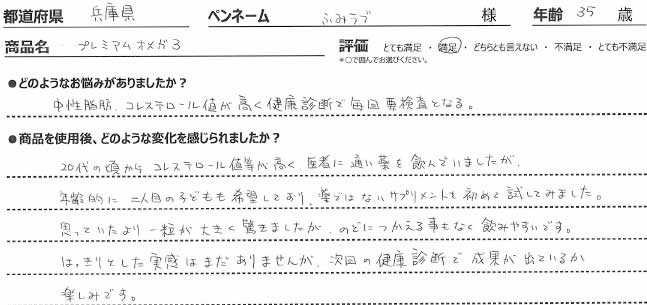 都道府県 兵庫県 ペンネーム ふみラブ 様 年齢 35 歳
商品名 プレミアムオメガ3 評価 とても満足・満足・どちらとも言えない・不満足・とても不満足
*○で囲んでお選びください。
●どのようなお悩みがありましたか？
中性脂肪、コレステロール値が高く健康診断で毎回要検査となる。
●商品を使用後、どのような変化を感じられましたか？
20代の頃からコレステロール値等が高く、医者に通い薬を飲んでいましたが、
年齢的に二人目の子どもも希望しており、薬ではないサプリメントを初めて試してみました。
思っていたより一粒が大きく驚きましたが、のどにつかえる事もなく飲みやすいです。
はっきりとした実感はまだありませんが、次回の健康診断で成果が出ているか
楽しみです。